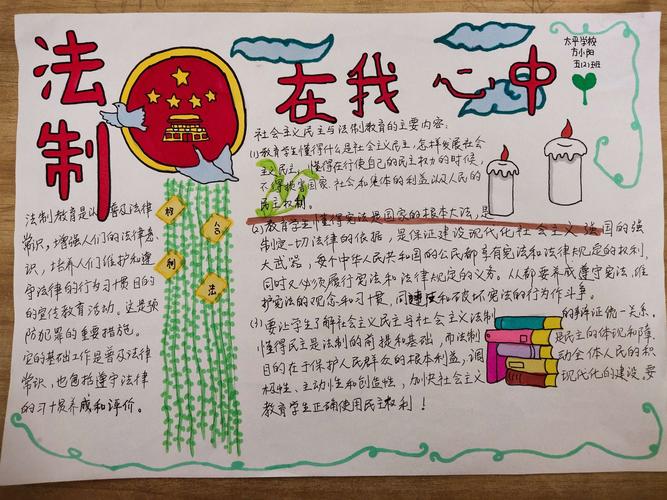 法制
在我心中
太平学校
方小阳
五(2)班
法制教育是以普及法律
常识，增强人们的法律意
识，培养人们维护和遵
守法律的行为习惯目的
的宣传教育活动。这是预
防犯罪的重要措施。
它的基础工作是普及法律
常识，也包括遵守法律
的习惯养成和评价。
权
利
法
社会主义民主与法制教育的主要内容：
(1)教育学生懂得什么是社会主义民主，怎样发展社会
主义民主，懂得在行使自己的民主权力的时候，
不得损害国家、社会和集体的利益以及人民的
民主权利。
(2)教育学生懂得宪法是国家的根本大法，是
制定一切法律的依据，是保证建设现代化社会主义强国的强
大武器，每个中华人民共和国的公民都享有宪法和法律规定的权利，
同时又必须履行宪法和法律规定的义务。人人都要养成遵守宪法，维
护宪法的观念和习惯，同违反和破坏宪法的行为作斗争。
(3)要让学生了解社会主义民主与社会主义法制的辩证统一关系，
懂得民主是法制的前提和基础，而法制是民主的体现和障，
目的在于保护人民群众的根本利益，调动全体人民的积
极性、主动性和创造性，加快社会主义现代化的建设，要
教育学生正确使用民主权利！